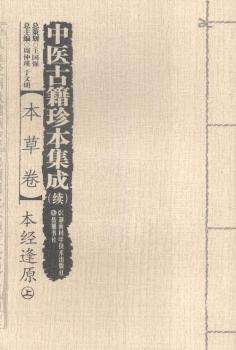 中医古籍珍本集成
(续)
总策划◎王国强
总主编◎周仲瑛 于文明
【本草卷】
本经逢原 上
湖南科学技术出版社
岳麓书社